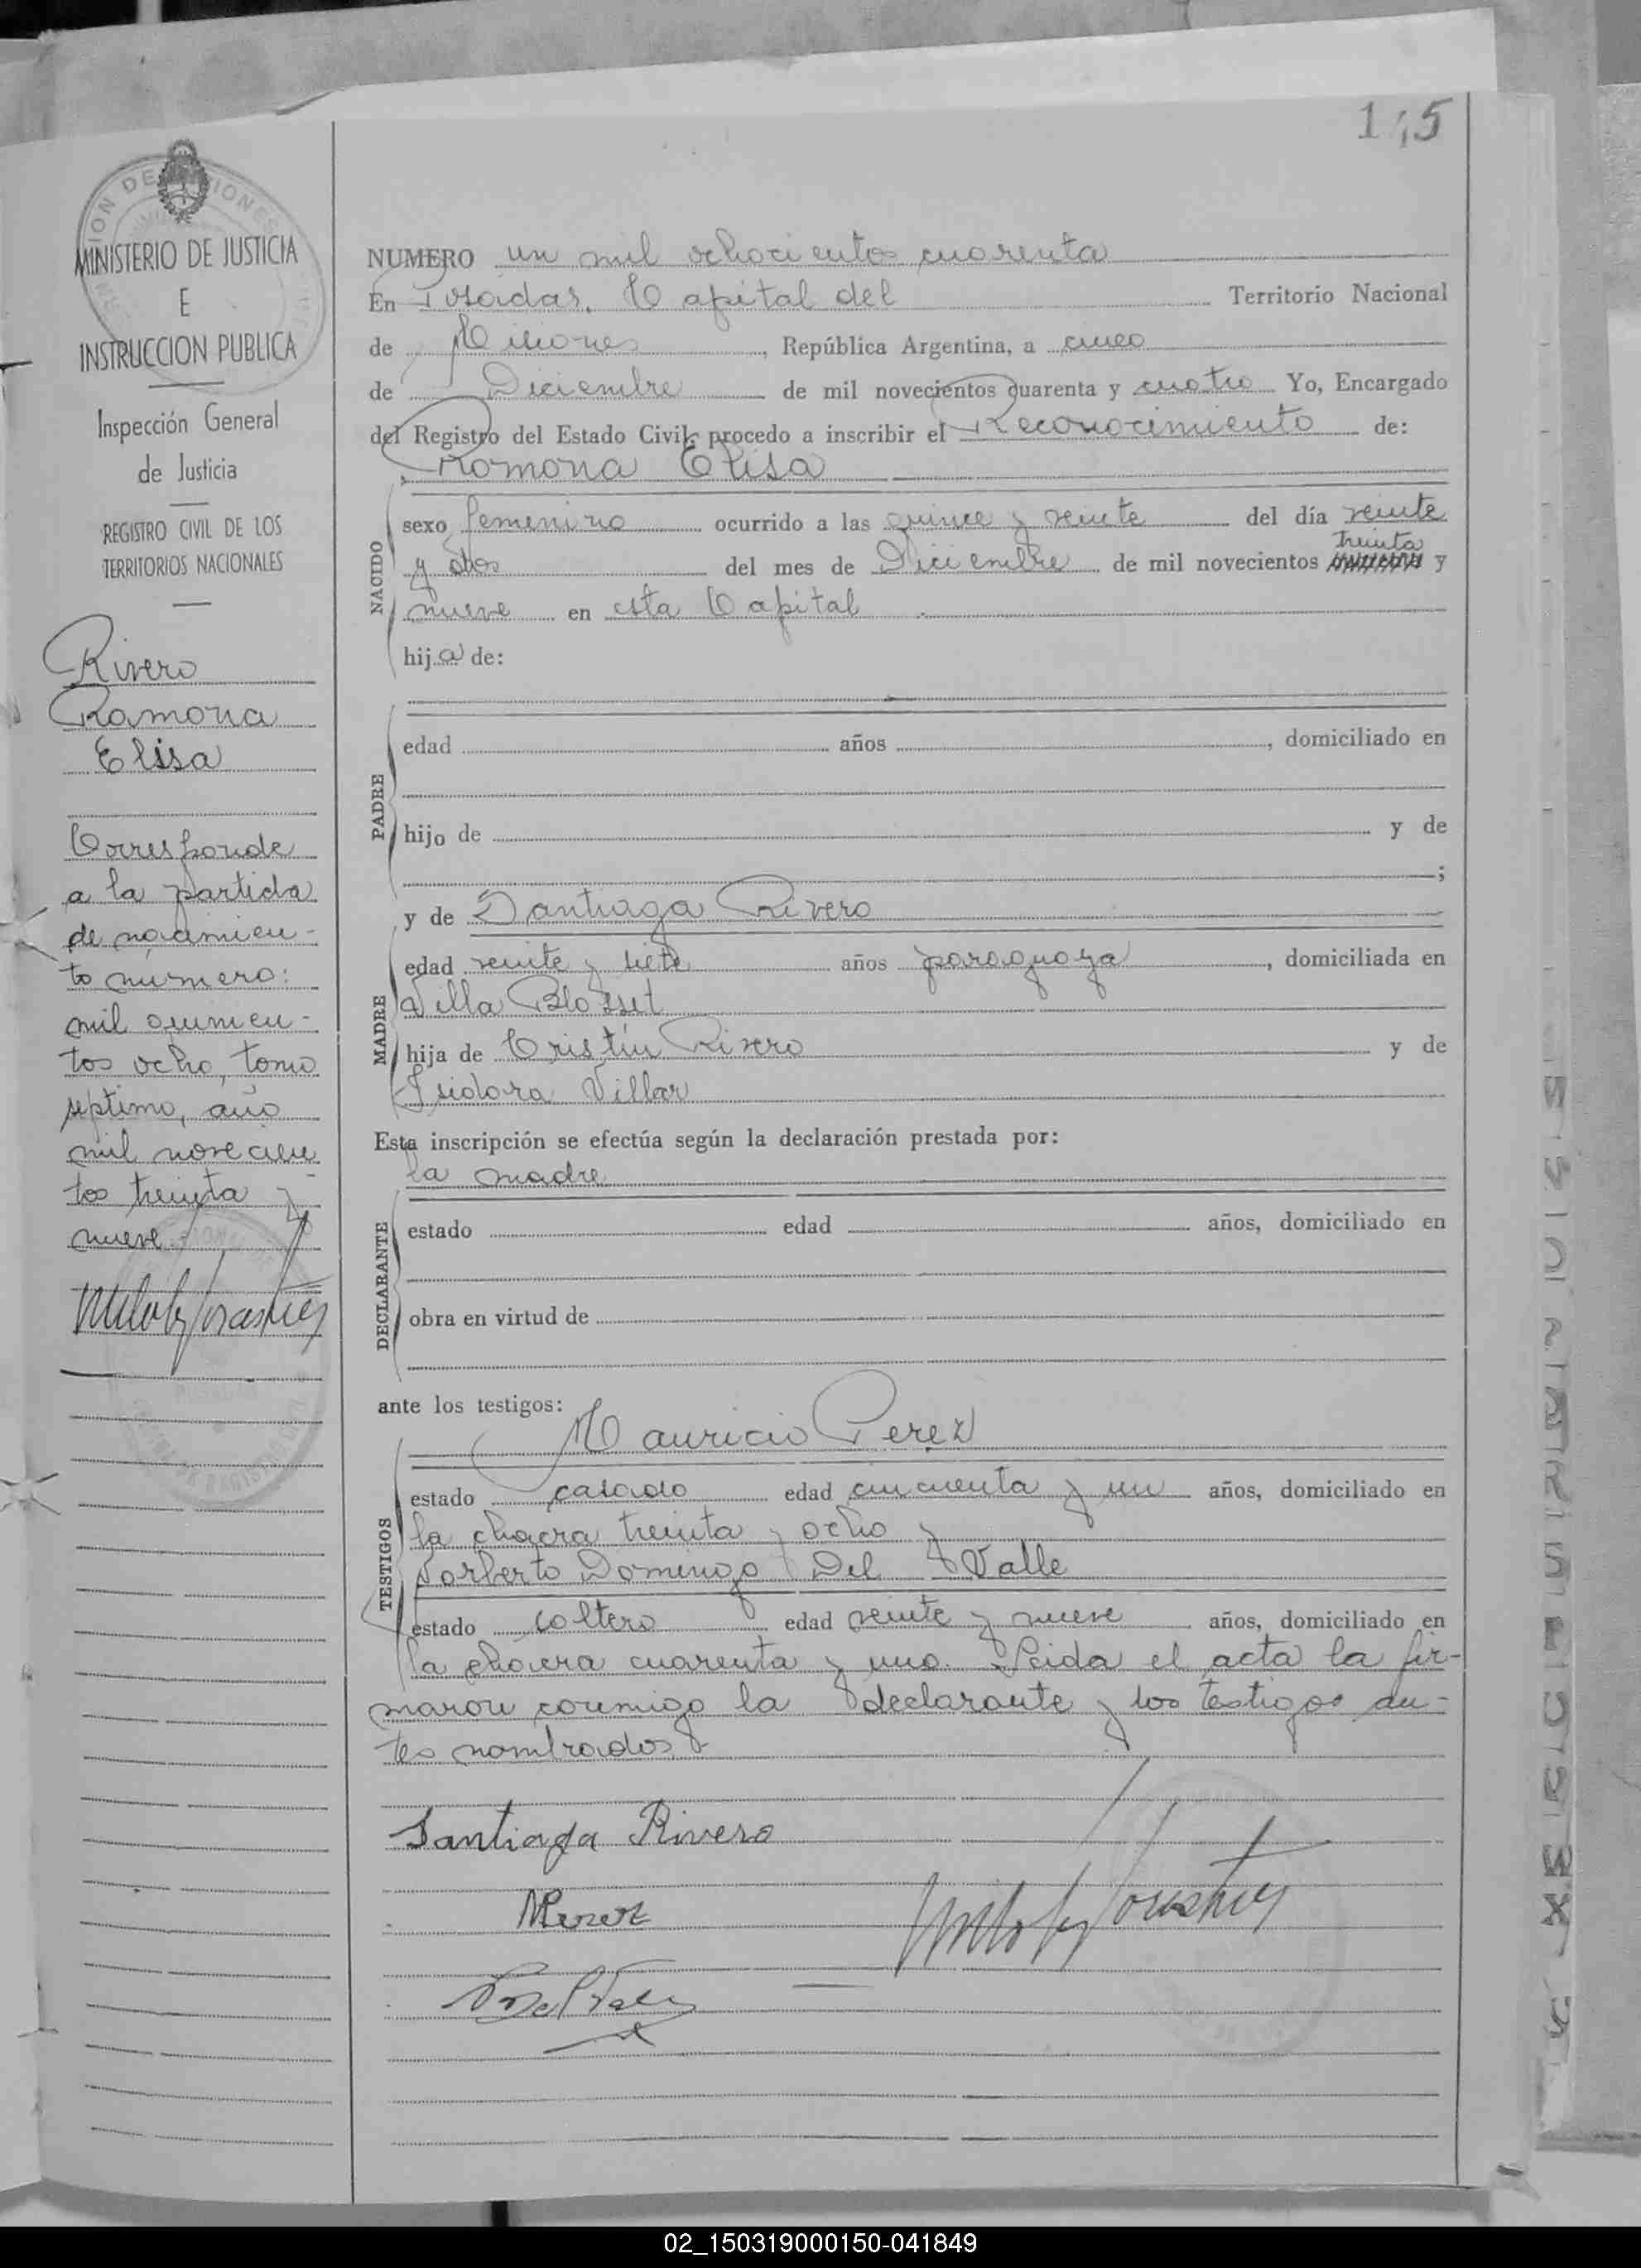 115
MINISTERIO DE JUSTICIA
E
INSTRUCCION PUBLICA
Inspección General
de Justicia
REGISTRO CIVIL DE LOS
TERRITORIOS NACIONALES
Rivero
Ramona
Elisa
Corresponde
a la partida
de nacimien-
to número:
mil quinien-
tos ocho, tomo
septimo, año
mil novecien
tos treinta y
nueve.-
NUMERO un mil ochocientos cuarenta
En Posadas, Capital del Territorio Nacional
de Misiones, República Argentina, a cinco
de Diciembre de mil novecientos cuarenta y cuatro Yo, Encargado
del Registro del Estado Civil, procedo a inscribir el Reconocimiento de:
Ramona Elisa
NACIDO
sexo femenino ocurrido a las quince y veinte del día veinte
y dos del mes de Diciembre de mil novecientos treinta y
nueve en esta Capital
hija de:
PADRE
edad años , domiciliado en
hijo de y de
;
MADRE
y de Santiaga Rivero
edad veinte y siete años paraguaya, domiciliada en
Villa Blosset
hija de Cristín Rivero y de
Isidora Villar
Esta inscripción se efectúa según la declaración prestada por:
la madre
DECLARANTE
estado edad años, domiciliado en
obra en virtud de
ante los testigos:
Mauricio Perez
TESTIGOS
estado casado edad cincuenta y un años, domiciliado en
la chacra treinta y ocho y
Norberto Domingo Del Valle
estado soltero edad veinte y nueve años, domiciliado en
la chacra cuarenta y uno. Leida el acta la fir-
maron conmigo la declarante y los testigos an-
tes nombrados
Santiaga Rivero
MPerez
02_150319000150-041849